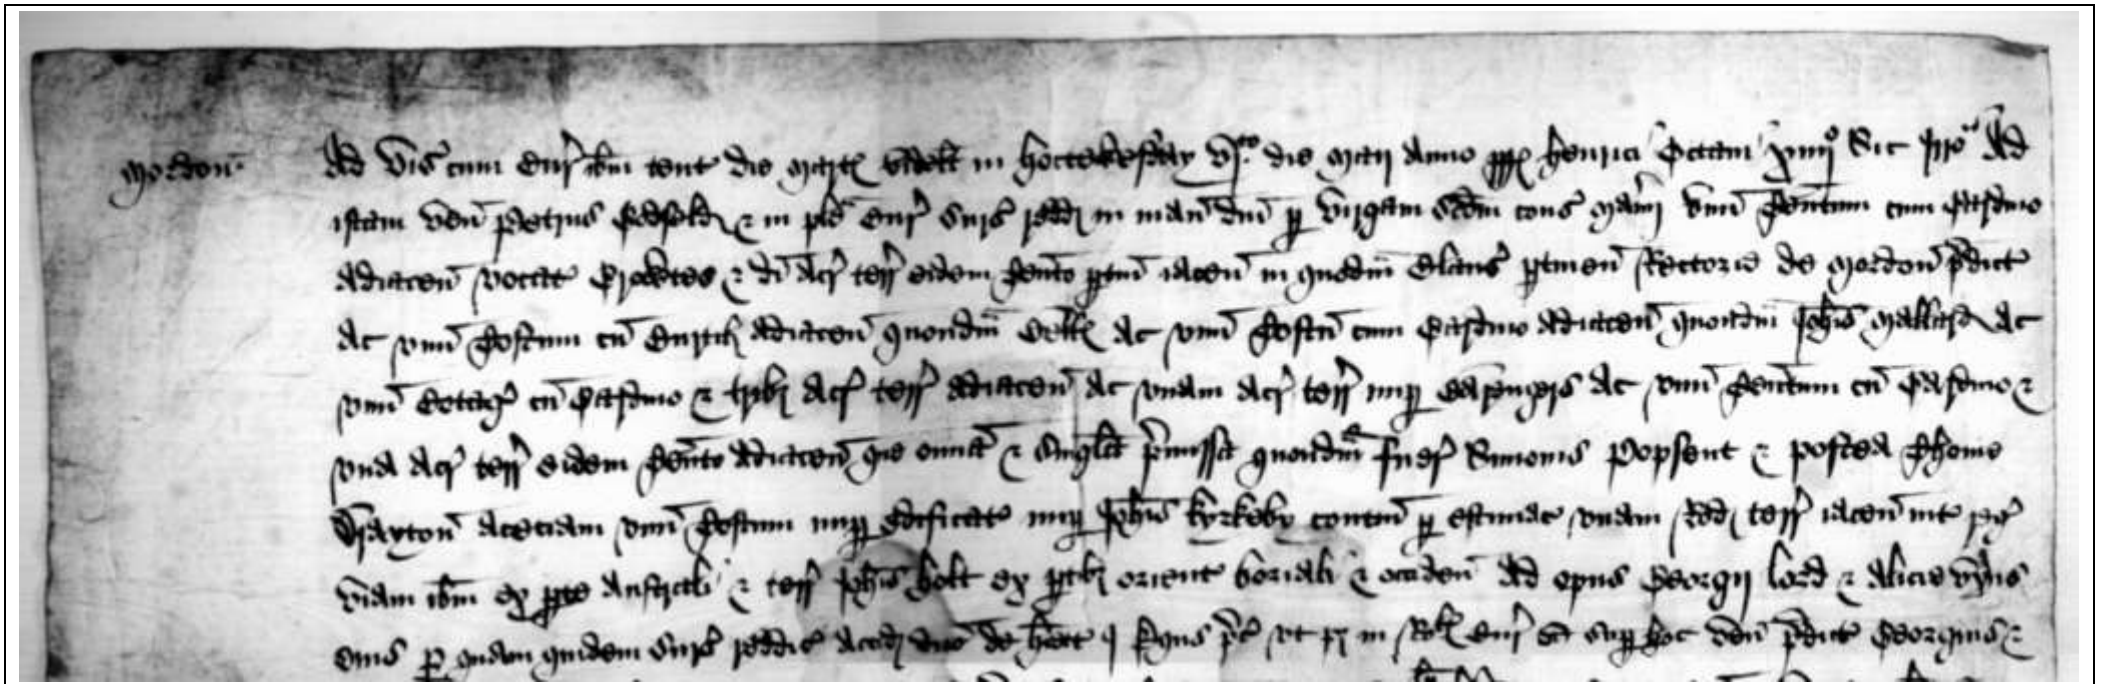 Mordon Ad vis cum Cur ibm tent die Martis videlt in hoccekesday vto die Maii Anno rr henrici Octavi xiiiio sic irro Ad
istam ven Petrus Bedfold & in plena Cur surs redd in man dni p virgam scdm cons Manij unu tentum cum Gardino
adiacen vocat Crocktes & di Acr terr eidem tento ptin iacen in quodm Claus ptinen Rectorie de Mordon pdict
ac unu Toftum cu Curtil adiacen quondm Belt ac unu Toftu cum Gardino adiacen quondm Johis Mallard ac
unu Cotag cu Gardino & trib acr terr adiacen ac unam acr terr nup ac unu tentum cu Gardino &
una acr terr eidem tento adiacen que omia & singula pmissa quondm fuer Simonis Popsent & postea Thome
Drayton aceciam unu Toftum nup edificat nup Johis Kyrkeby contin p estimac unam rod terr iacen int
viam ibm ex pte Australi & terr Johis holt ex ptib orient boriali & occiden ad opus Georgii lord & Alicie uxis
eius p quam quidem surs reddit acced duo de heret & fynis pt ut pz in Rotl Cur Et sup hoc ven pdict Georgius &